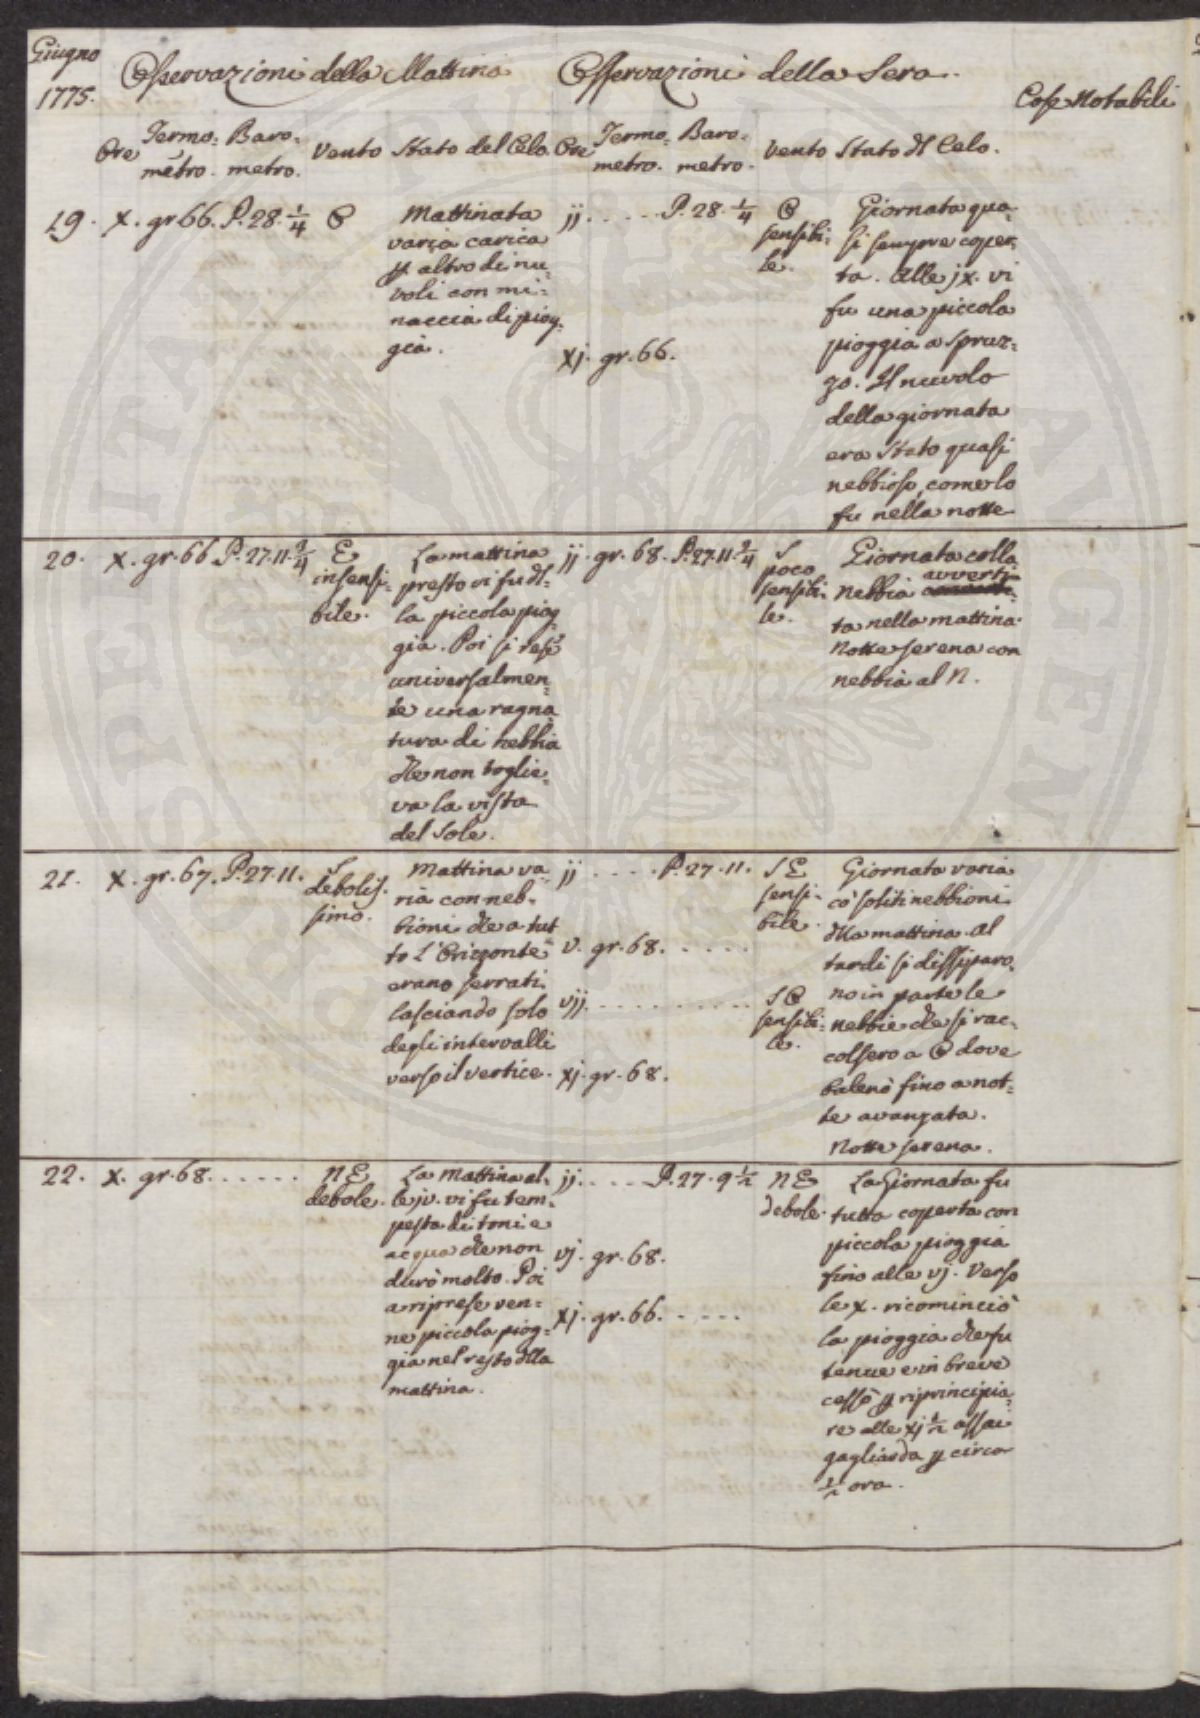 Giugno
1775.
Osservazioni della Mattina
Osservazioni della Sera.
Cose Notabili
Ore
Termo=
metro.
Baro=
metro.
Vento
Stato del Celo.
Ore
Termo=
metro.
Baro=
metro.
Vento
Stato dl Celo.
19. X. gr 66. P. 28. 1/4 O
Mattinata
varia carica
p altro di nu=
voli con mi=
naccia di piog=
gia.
ij. . . . . P. 28. 1/4
O
sensibi=
le.
xj. gr. 66.
Giornata qua=
si sempre coper=
ta. Alle jx. vi
fu una piccola
pioggia a spruz=
zo. Il nuvolo
della giornata
era stato quasi
nebbioso, come lo
fu nella notte
20. X. gr. 66 P. 27. 11. 3/4
E
insensi=
bile.
La mattina
presto vi fu dl=
la piccola piog=
gia. Poi si rese
universalmen=
te una ragna=
tura di nebbia
che non toglie=
va la vista
del Sole.
ij. gr. 68. P. 27. 11. 3/4
S
poco
sensibi=
le.
Giornata colla
nebbia avverti=
ta nella mattina
Notte serena con
nebbia al N.
21. X. gr. 67. P. 27. 11.
S
debolis=
simo.
Mattina va=
ria con neb=
bioni che a tut=
to l'Orizzonte
erano serrati
lasciando solo
degli intervalli
verso il vertice.
ij . . . . P. 27. 11.
S E
sensi=
bile.
v. gr. 68. . . . . .
vij. . . . . . . . . . .
S O
sensibi=
le.
xj. gr. 68.
Giornata varia
co' soliti nebbioni
dlla mattina. Al
tardi si dissiparo=
no in parte le
nebbie che si rac=
colsero a O dove
balenò fino a not=
te avanzata.
Notte serena.
22. X. gr. 68. . . . . . .
N E
debole.
La Mattina al=
le jv. vi fu tem=
pesta di toni e
acqua che non
durò molto. Poi
a riprese ven=
ne piccola piog=
gia nel resto dlla
mattina.
ij. . . . . P. 27. 9 1/2
N E
debole.
vj. gr. 68.
xj. gr. 66. . . . . .
La Giornata fu
tutta coperta con
piccola pioggia
fino alle vj. Verso
le x. ricominciò
la pioggia che fu
tenue e in breve
cessò p riprincipia=
re alle xj 1/2 assai
gagliarda p circa
1/2 ora.